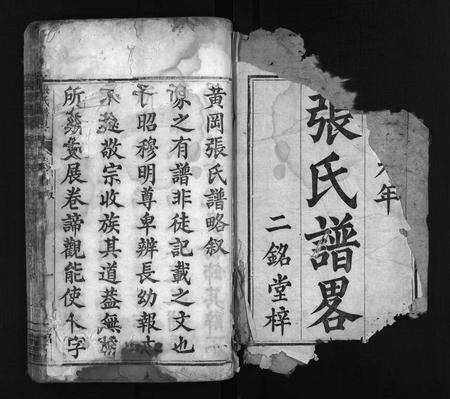 年
張氏譜畧
二銘堂梓
黃岡張氏譜略叙
家之有譜非徒記載之文也
昭穆明尊卑辨長幼報
敬宗收族其道蓋無
所展卷諦觀能使人字